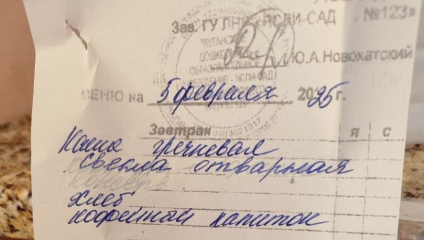 Зав. ГУ ЛНР «ЯСЛИ-САД №123»
Ю.А.Новохатский
МЕНЮ на 5 февраля 2025г.
Завтрак Я С
Каша гречневая
Свекла отварная
Хлеб
Кофейный напиток